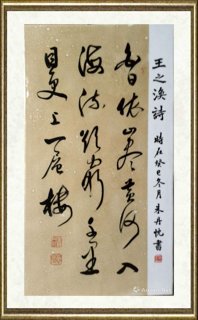 王之渙詩 時在癸巳冬月 朱丹書
白日依山盡黄河入
海流欲窮千里
目更上一層樓